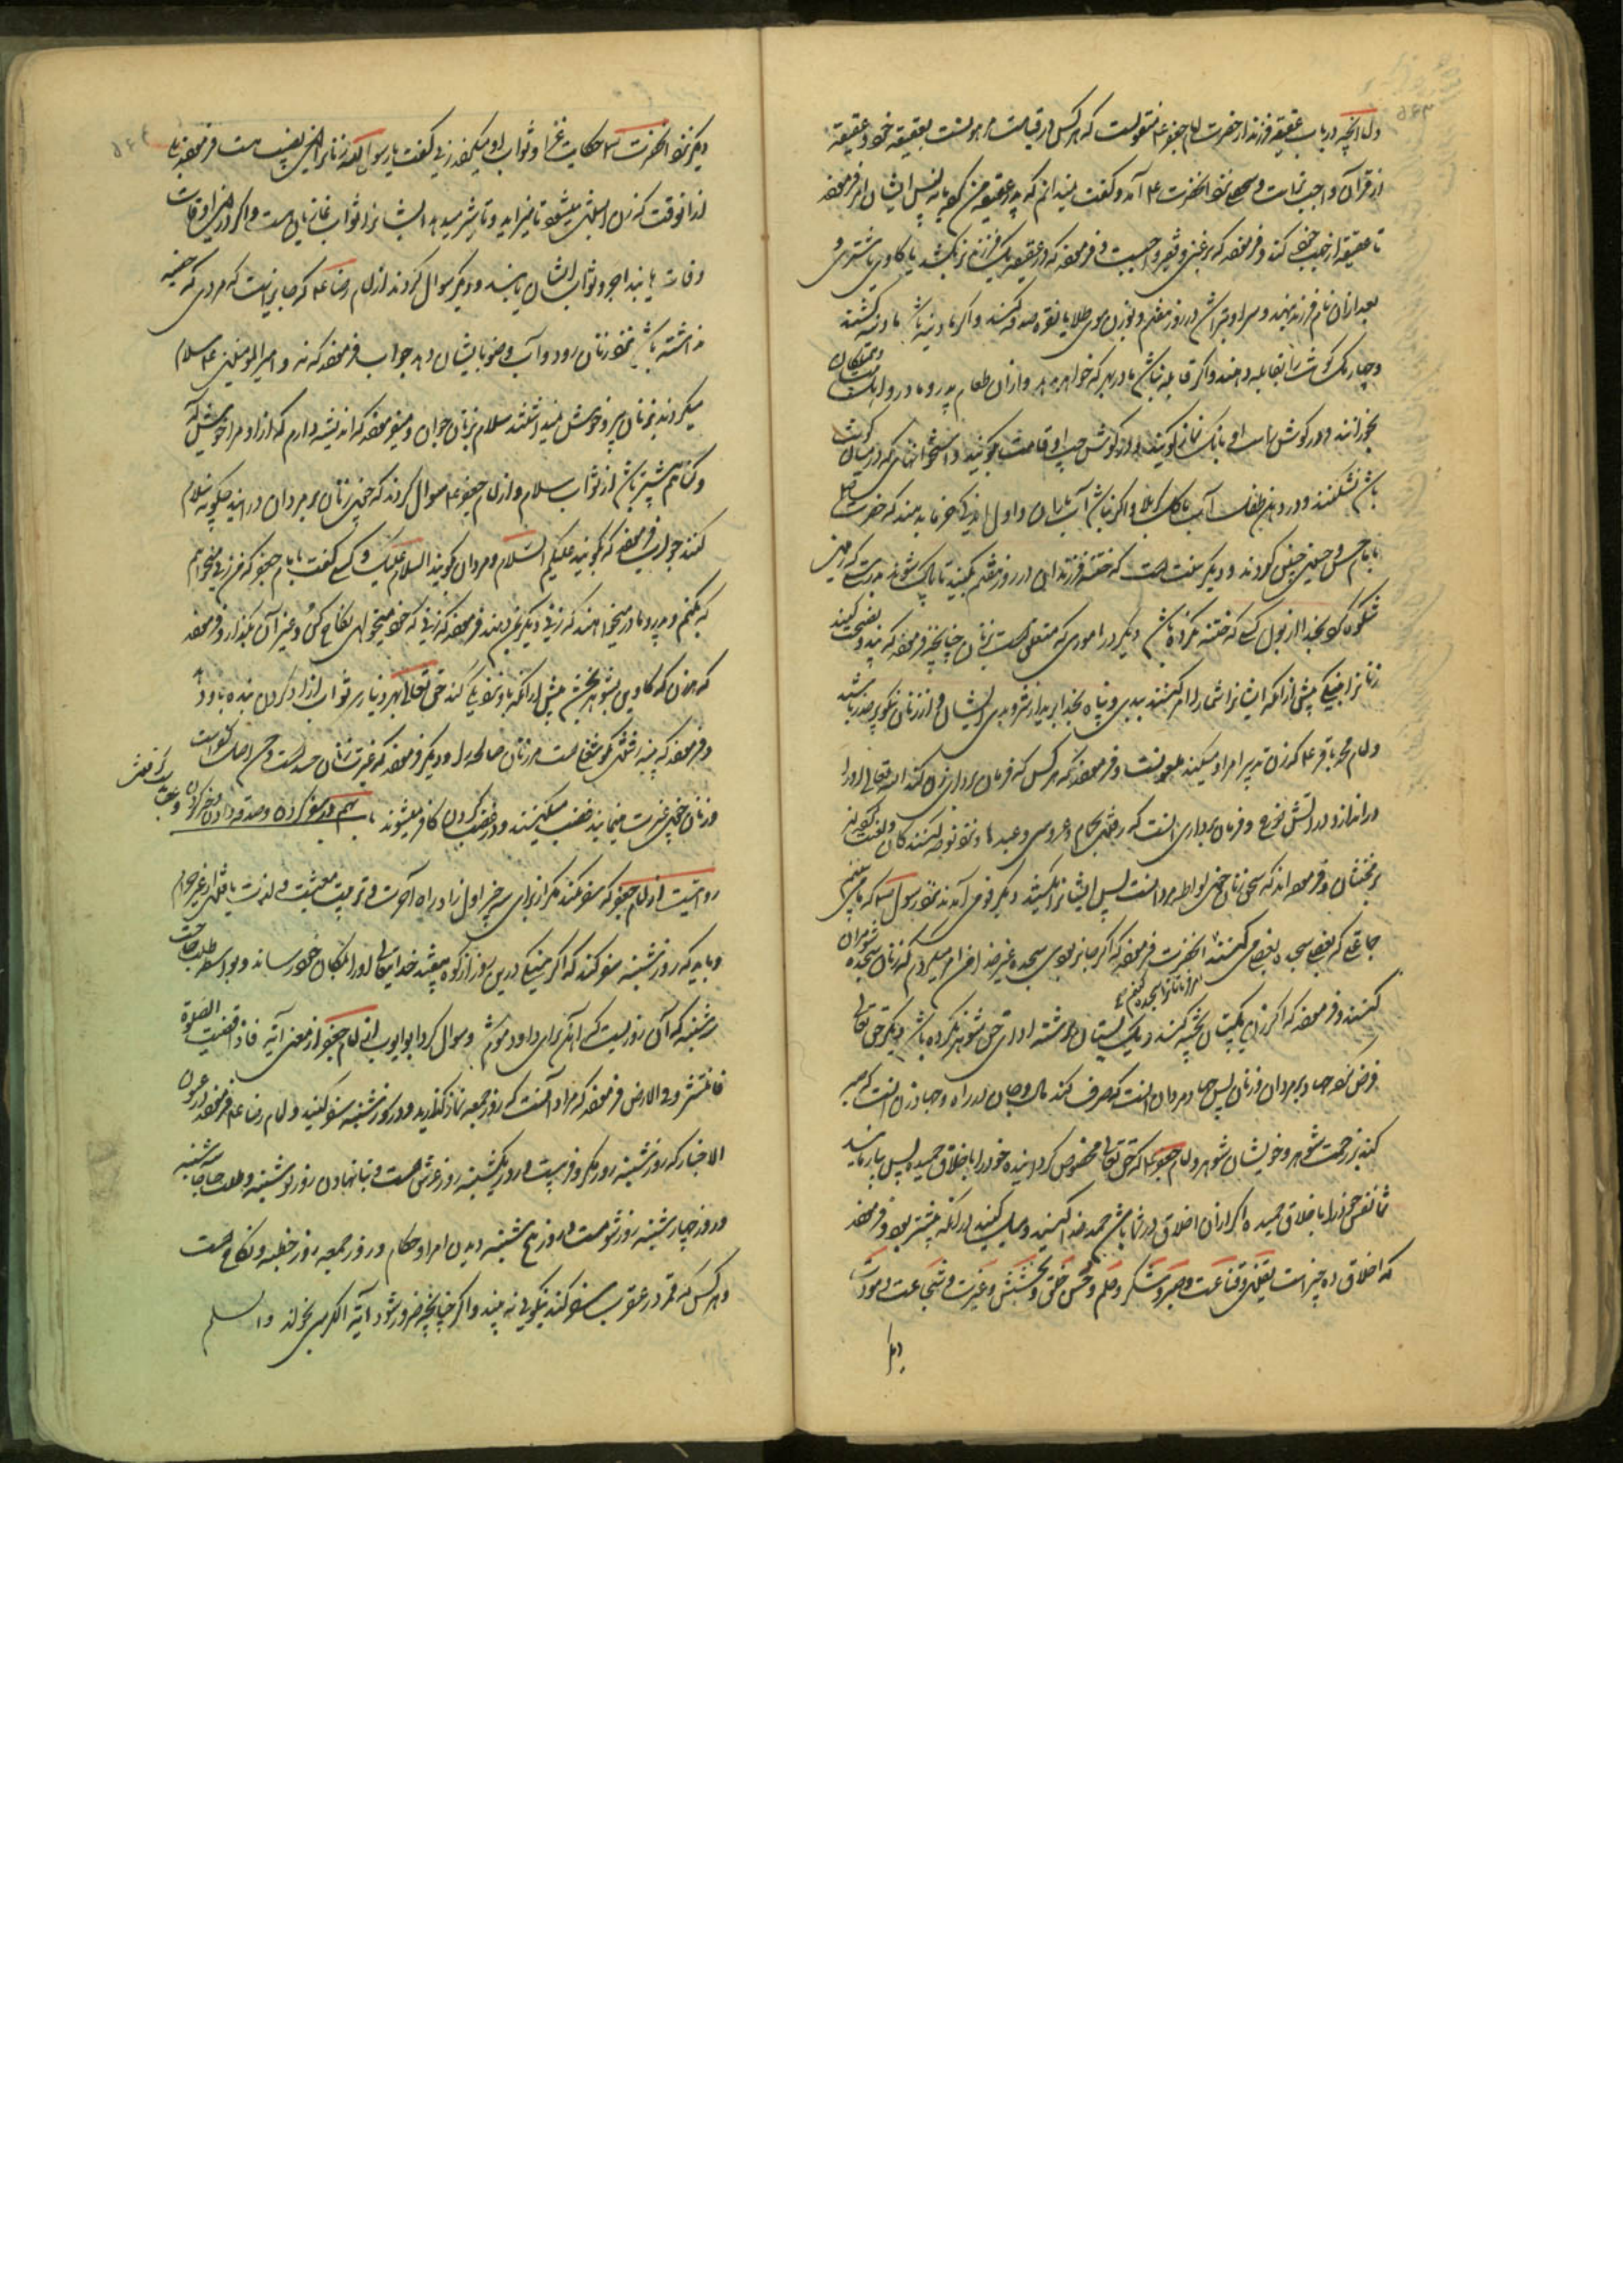 واما انچه در باب عقیقه فرزند از حضرت امام جعفر ع منقولست که هر کس در قیامت مرهونست بعقیقه خود و عقیقه
از قرآن واجب تر است و شخصی نزد انحضرت ع آمد و گفت نمیدانم که پدر عقیقه من کرده یا نه پس ایشان امر فرمودند
تا عقیقه از جانب خود کند و فرموده که بر غنی و فقیر واجبست و فرموده که در عقیقه یک فرزند نر بکشید یا گاوی یا شتری و
بعد ازان نام فرزند نهند و سر او تراشند در روز هفتم و بوزن موی طلا یا نقره صدقه کنند و اگر مادینه باشد مادینه کشند
و چاریک گوشت را بقابله دهند و اگر قابله نباشد مادر بهر که خواهد بدهد و ازان طعام پدر و مادر
نخورانند و در گوش راست او بانک نماز گویند و در گوش چپ او قامت گویند و استخوانهای که در میان گوشت
باشد نشکنند و در دهن طفل آب با خاک کربلا و اگر نباشد آب باران و اول اندکی خرما بدهند که حضرت رسول
با امام حسن و حسین چنین کردند و دیگر سنت است که ختنه فرزندان در روز هفتم بکنید تا پاک شوند بدرستی که زمین
شکوه کند بخدا از بول کسی که ختنه نکرده باشد دیگر در اموری که متعلق است بزنان چنانچه فرموده که پند و نصیحت کنید
زنانرا به نیکی پیش ازانکه ایشان شما را امر کنند ببدی و پناه بخدا برید از شر و بدی ایشان و از زنان نیکو پر حذر باشید
و امام محمد باقر ع که زن تدبیر امرا و میکند ملعونست و فرموده که هر کس که فرمان برداری زن کند الله تعالی او را
در اندازد در آتش دوزخ و فرمان برداری انست که رفتن بحمام و عروسی و عیدها و نزد نوحه کنندگان
بر مخنثان و فرموده اند که سحق زنان چون لواطه مردانست پس ایشانرا بکشید دیگر قومی آمدند نزد رسول الله که ما می بینیم
جماعتی که بعضی سجده بعضی میکنند انحضرت فرموده که اگر جایز بودی سجده غیر خدا هر آینه امر میکردم که زنان سجده شوهران
کنند و فرموده که اگر زنی یک پستان پخته کند و یک پستان برشته ادای حق شوهر نکرده باشد دیگر حق تعالی
فرض نمود جهاد بر مردان و زنان پس جهاد مردان انست که صرف کند مال و جان در راه و جهاد زن انست که صبر
کند بر زحمت شوهر و خویشان شوهر و امام جعفر ع که حق تعالی مخصوص گردانیده خود را باخلاق حمیده پس بیازمایید
شما نفس خود را باخلاق حمیده اگر ازان اخلاق در شما باشد حمد خدا کنید و سعی کنید در آنکه بیشتر بود و فرموده
که اخلاق ده چیز است یقین و قناعت و صبر و شکر و حلم و حسن خلق و بخشش و غیرت و شجاعت و مروت
دیگر
دیگر نزد انحضرت حکایت غزا و ثواب او میکردند زنی گفت یا رسول الله زنانرا ازین نصیب هست فرمودند بلی
از انوقت که زن ابستن میشود تا میزاید و تا شیر میدهد ایشانرا ثواب غازیان هست و اگر درین اوقات
وفات یابند اجر و ثواب ایشان یابند و دیگر سوال کردند از امام رضا ع که جایز است که مردی که خصیه
نداشته باشد نزد زنان رود و آب وضو بایشان دهد جواب فرمودند که نه و امیر المؤمنین ع سلام
میکردند بزنان پیر و خوش نمیداشتند سلام بزنان جوان و میفرمودند که اندیشه دارم که آواز او مرا خوش آید
و گناهم بیشتر باشد از ثواب سلام و از امام جعفر ع سوال کردند که چون زنان بر مردان در آیند چگونه سلام
کنند جواب فرمودند که بگویند علیکم السلام و مردان گویند السلام علیک و کسی گفت با امام جعفر که من زنی میخواهم
که بکنم و پدر و مادر میخواهند که زنی دیگر بمن دهند فرمودند که زنی که خود میخواهی نکاح کن و غیر آن بگذار و فرموده
که هر زن که کاوین بشوهر بخشد پیش ازانکه با او نزدیکی کند حق تعالی بهر دیناری ثواب آزاد کردن بنده باو دهد
و فرموده که پنبه رشتن نیکو شغلیست مر زنان صالحه را و دیگر فرموده که غیرت زنان حسد است و حسد اصل کفر است
و زنان چون غیرت مینمایند غضب میکنند و در غضب کردن کافر میشوند باب نهم در سفر کردن و صدقه دادن
روایتست از امام جعفر که سفر نکند مگر از برای سه چیز اول زاد راه آخرت و تربیت معیشت و لذت یافتن از غیر حرام
و باید که روز شنبه سفر کند که اگر سنگی درین روز از کوه بیفتد خدایتعالی او را بمکان خود رساند و بواسطه طلب حاجت
سه شنبه که آن روزیست که آهن برای داود نرم شد و سوال کرد ابو ایوب از امام جعفر از معنی آیه فاذا قضیت الصلوة
فانتشروا فی الارض فرمودند که مراد آنست که روز جمعه نماز گذارید و در روز شنبه سفر کنید و امام رضا ع فرموده در عیون
الاخبار که روز شنبه روز مکر و فریبست و روز یکشنبه روز غرس هست و بنا نهادن و روز دوشنبه و طلب حاجات سه شنبه
و روز چهارشنبه روز شومست و روز پنج شنبه دیدن امرا و حکام و روز جمعه روز خطبه و نکاح هست
و هر کس که قمر در عقرب سفر کند نیکویی نه بیند و اگر چنانچه ضرور شود آیة الکرسی بخواند والسلم